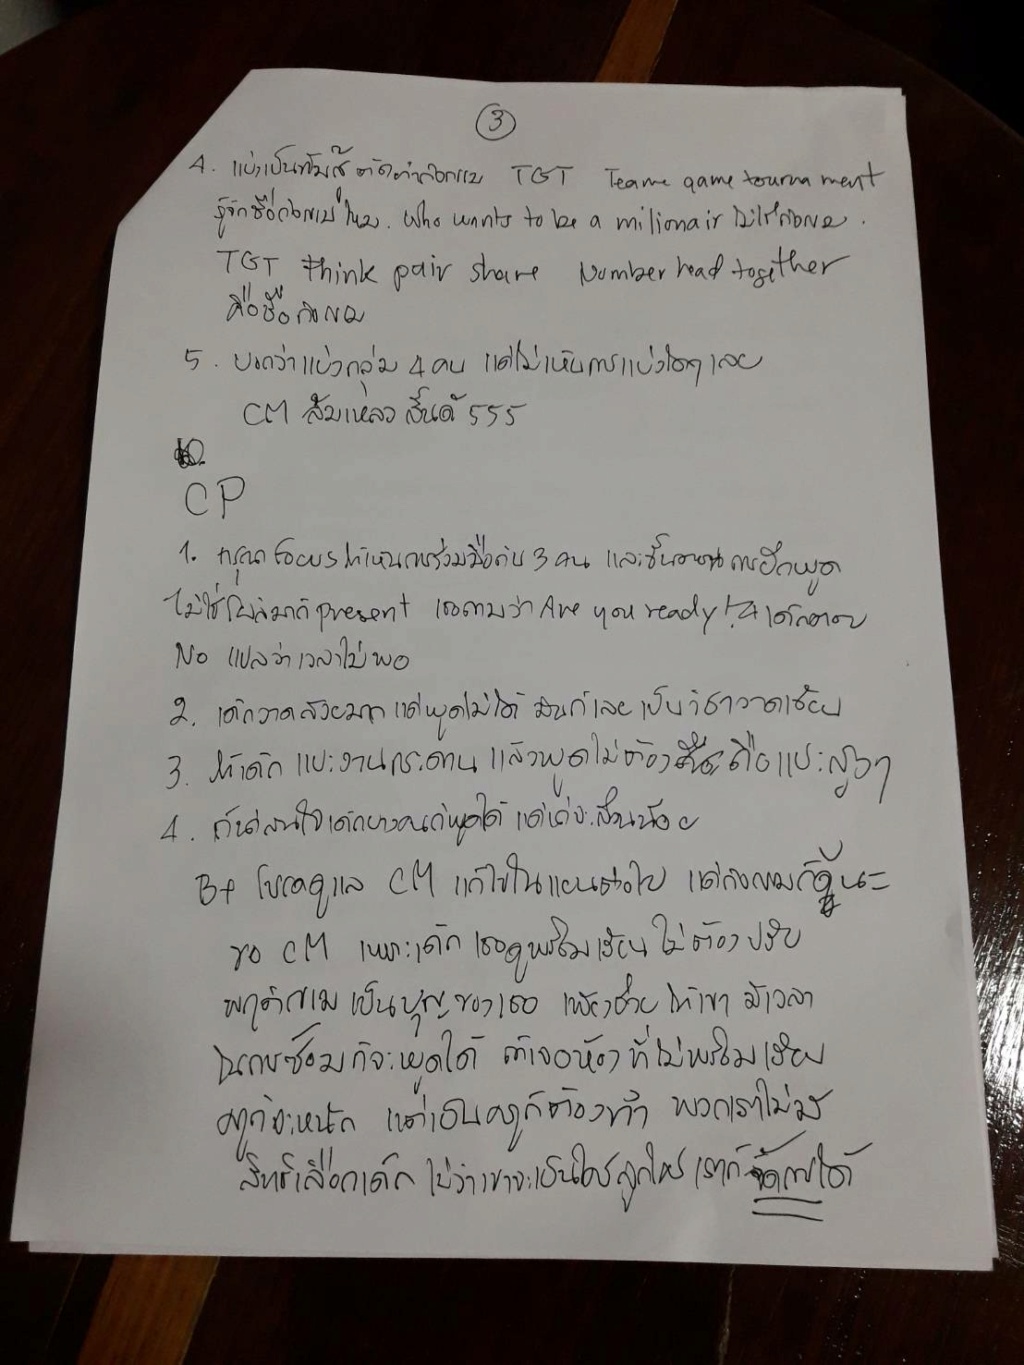 3
4. แบ่งเป็นทีมสี ตัดคำว่าเกม TGT Teame game tournament
รู้จักชื่อเกมไหม. Who wants to be a milionair ไม่ใช่เกม.
TGT think pair share Number head together
คือชื่อเกม
5. บอกว่าแบ่งกลุ่ม 4 คน แต่ไม่เห็นการแบ่งใดๆ เลย
CM ล้มเหลวสิ้นดี 555
CP
1. กรุณา focus ให้เห็นการร่วมมือกัน 3 คน และขั้นตอนการฝึกพูด
ไม่ใช่ present เธอถามว่า Are you ready! เด็กตอบ
No แปลว่าเวลาไม่พอ
2. เด็กวาดสวยมาก แต่พูดไม่ได้ เลย เป็นวิชาวาดเขียน
3. ให้เด็กแปะงานกระดาน แล้วพูดไม่ต้อง ถือ แปะสูงๆ
4. เด็กบางคนก็พูดได้ แต่ ส่วนน้อย
โปรดดูแล CM แก้ไขในแผนต่อไป แต่ นะ
ขอ CM เพราะเด็กเธอดูพร้อมเรียน ไม่ต้องปรับ
พฤติกรรม เป็นบุญของเธอ เพียงช่วยให้เขา มีเวลา
ในการซ้อม ก็จะพูดได้ ถ้าเจอห้องที่ไม่พร้อมเรียน
ครูก็จะหนัก แต่เป็นครูก็ต้องทำ พวกเราไม่มี
สิทธิ์เลือกเด็ก ไม่ว่าเขาจะเป็นใครลูกใคร เราก็จัดการได้